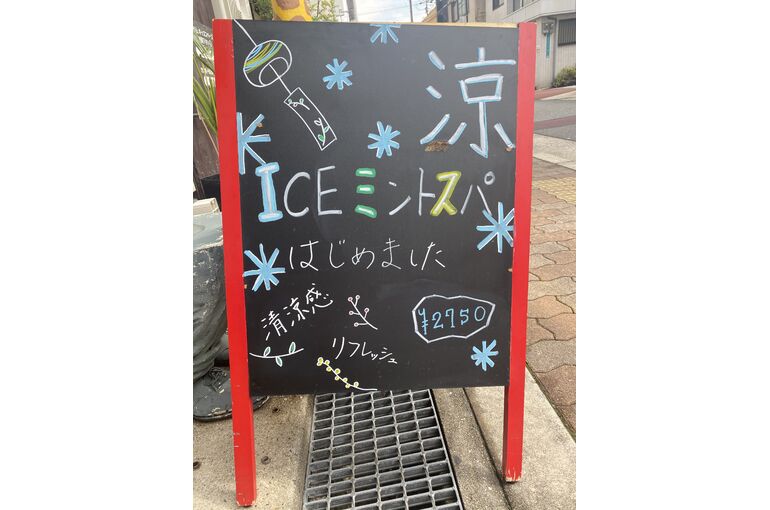 涼
ICEミントスパ
はじめました
清涼感
リフレッシュ
¥2750